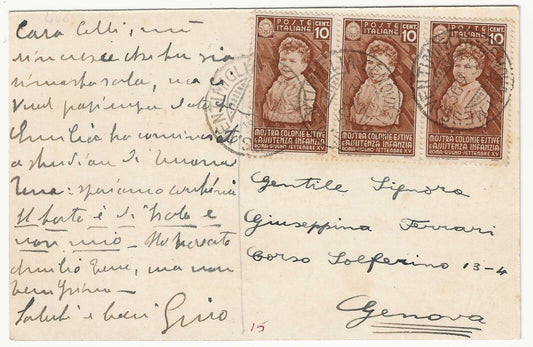 Cara Celli, mi
rincresce che tu sia
rimasta sola, ma ci
vuol pazienza
Emilio ha cominciato
a studiare di buona
lena: speriamo
Il forte è di Paolo e
non mio.
Emilio bene, ma non
benissimo.
Saluti e baci Gino
POSTE ITALIANE CENT. 10
MOSTRA COLONIE ESTIVE
E ASSISTENZA INFANZIA
ROMA-GIUGNO-SETTEMBRE XV
POSTE ITALIANE CENT. 10
MOSTRA COLONIE ESTIVE
E ASSISTENZA INFANZIA
ROMA-GIUGNO-SETTEMBRE XV
POSTE ITALIANE CENT. 10
MOSTRA COLONIE ESTIVE
E ASSISTENZA INFANZIA
ROMA-GIUGNO-SETTEMBRE XV
Gentile Signora
Giuseppina Ferrari
Corso Solferino 13-4
Genova
15